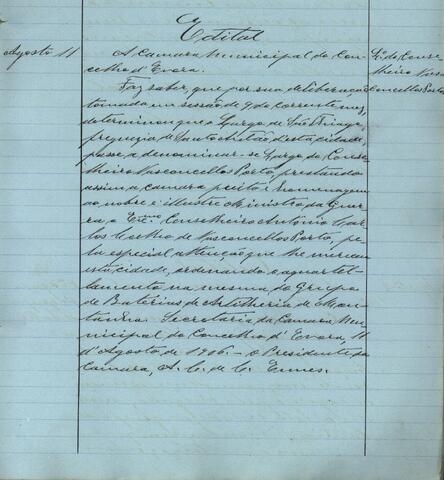 Edital
Agosto 11
A Camara Municipal do Con-
celho d'Evora.
Faz saber, que por sua deliberação
tomada na sessão de 9 do corrente mez,
determinou que o Largo de São Thiago
freguezia de Santo Antão d'esta cidade,
passe a denominar-se Largo do Conse-
lheiro Vasconcellos Porto, prestando
assim a camara preito e homenagem
ao nobre e illustre Ministro da Guer-
ra o Exmo Conselheiro Antonio Car-
los Coelho de Vasconcellos Porto, pe-
la especial attenção que lhe mereceu
esta cidade, ordenando o aquartel-
lamento na mesma do Grupo
de Baterias de Artilheria de Mon-
tanha. Secretaria da Camara Mu-
nicipal do Concelho d'Evora, 11
d'Agosto de 1906. - O Presidente da
Camara, A. C. de C.
Lo. do Conse-
lheiro Vas-
concellos Porto